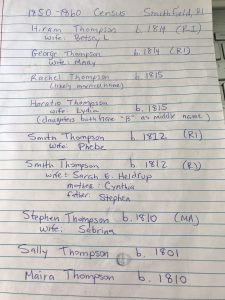 1850-1860 Census Smithfield, RI
Hiram Thompson b. 1814 (RI)
wife: Betsey
George Thompson b. 1814 (RI)
wife: Mary
Rachel Thompson b. 1815
(likely married name)
Horatio Thompson
wife: Lydia b. 1815
(daughters both have "B" as middle name)
Smith Thompson b. 1812 (RI)
wife: Phebe
Smith Thompson b. 1812 (RI)
wife: Sarah E.
mother: Cynthia
father: Stephen
Stephen Thompson b. 1810 (MA)
wife: Sabrina
Sally Thompson b. 1801
Maira Thompson b. 1810